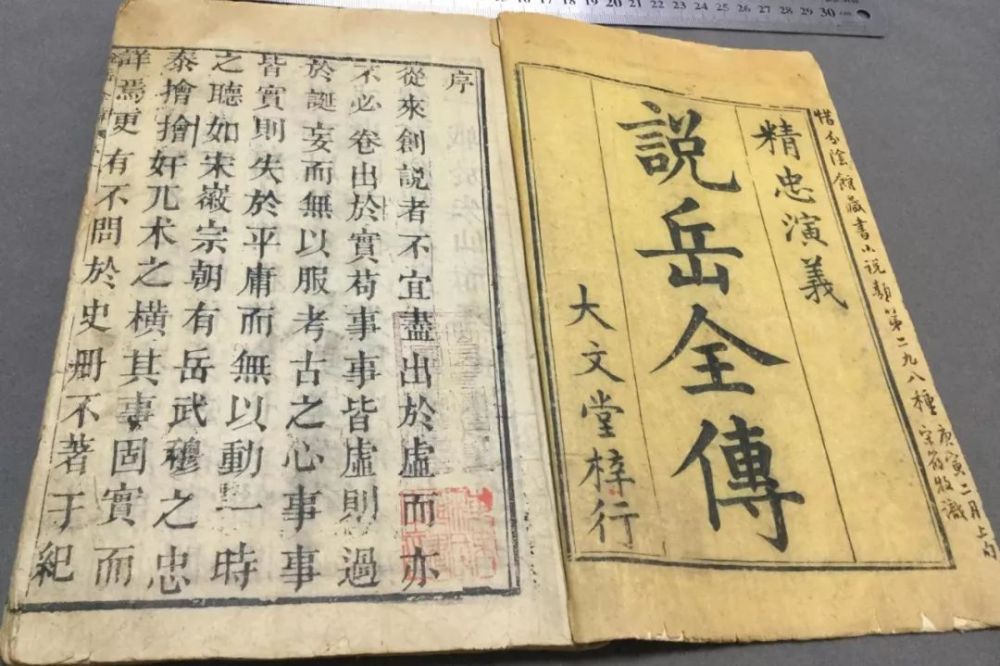 惜分陰館藏書小説類第二九八種
庚寅二月上旬
宋筱牧識
精忠演義
説岳全傳
大文堂梓行
序
從來創説者不宜盡出於虛而亦
不必卷出於實苟事事皆虛則過
於誕妄而無以服考古之心事事
皆實則失於平庸而無以動一時
之聽如宋徽宗朝有岳武穆之忠
秦檜檜奸兀术之橫其事固實而
詳焉更有不問於史册不著于紀
18 19 20 21 22 23 24 25 26 27 28 29 30